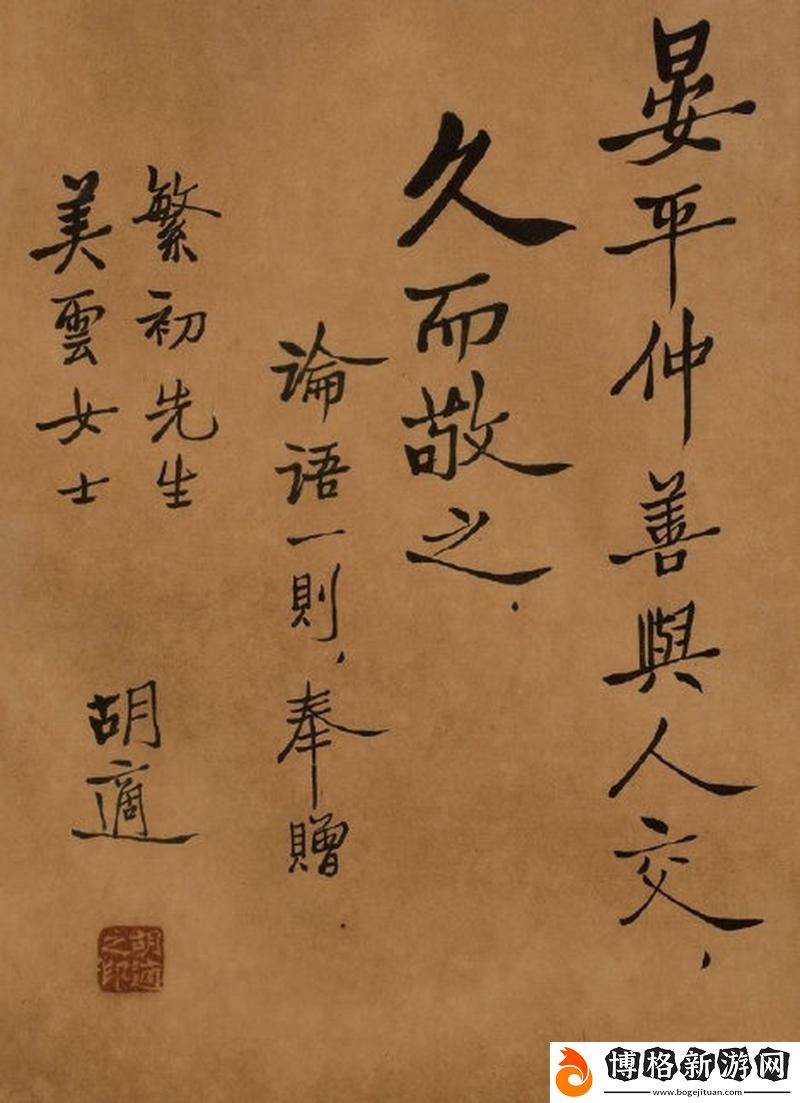 晏平仲善與人交，
久而敬之．
論語一則，奉贈
繁初先生
美雲女士
胡適
胡適之印
博格新游网
www.bogejituan.com